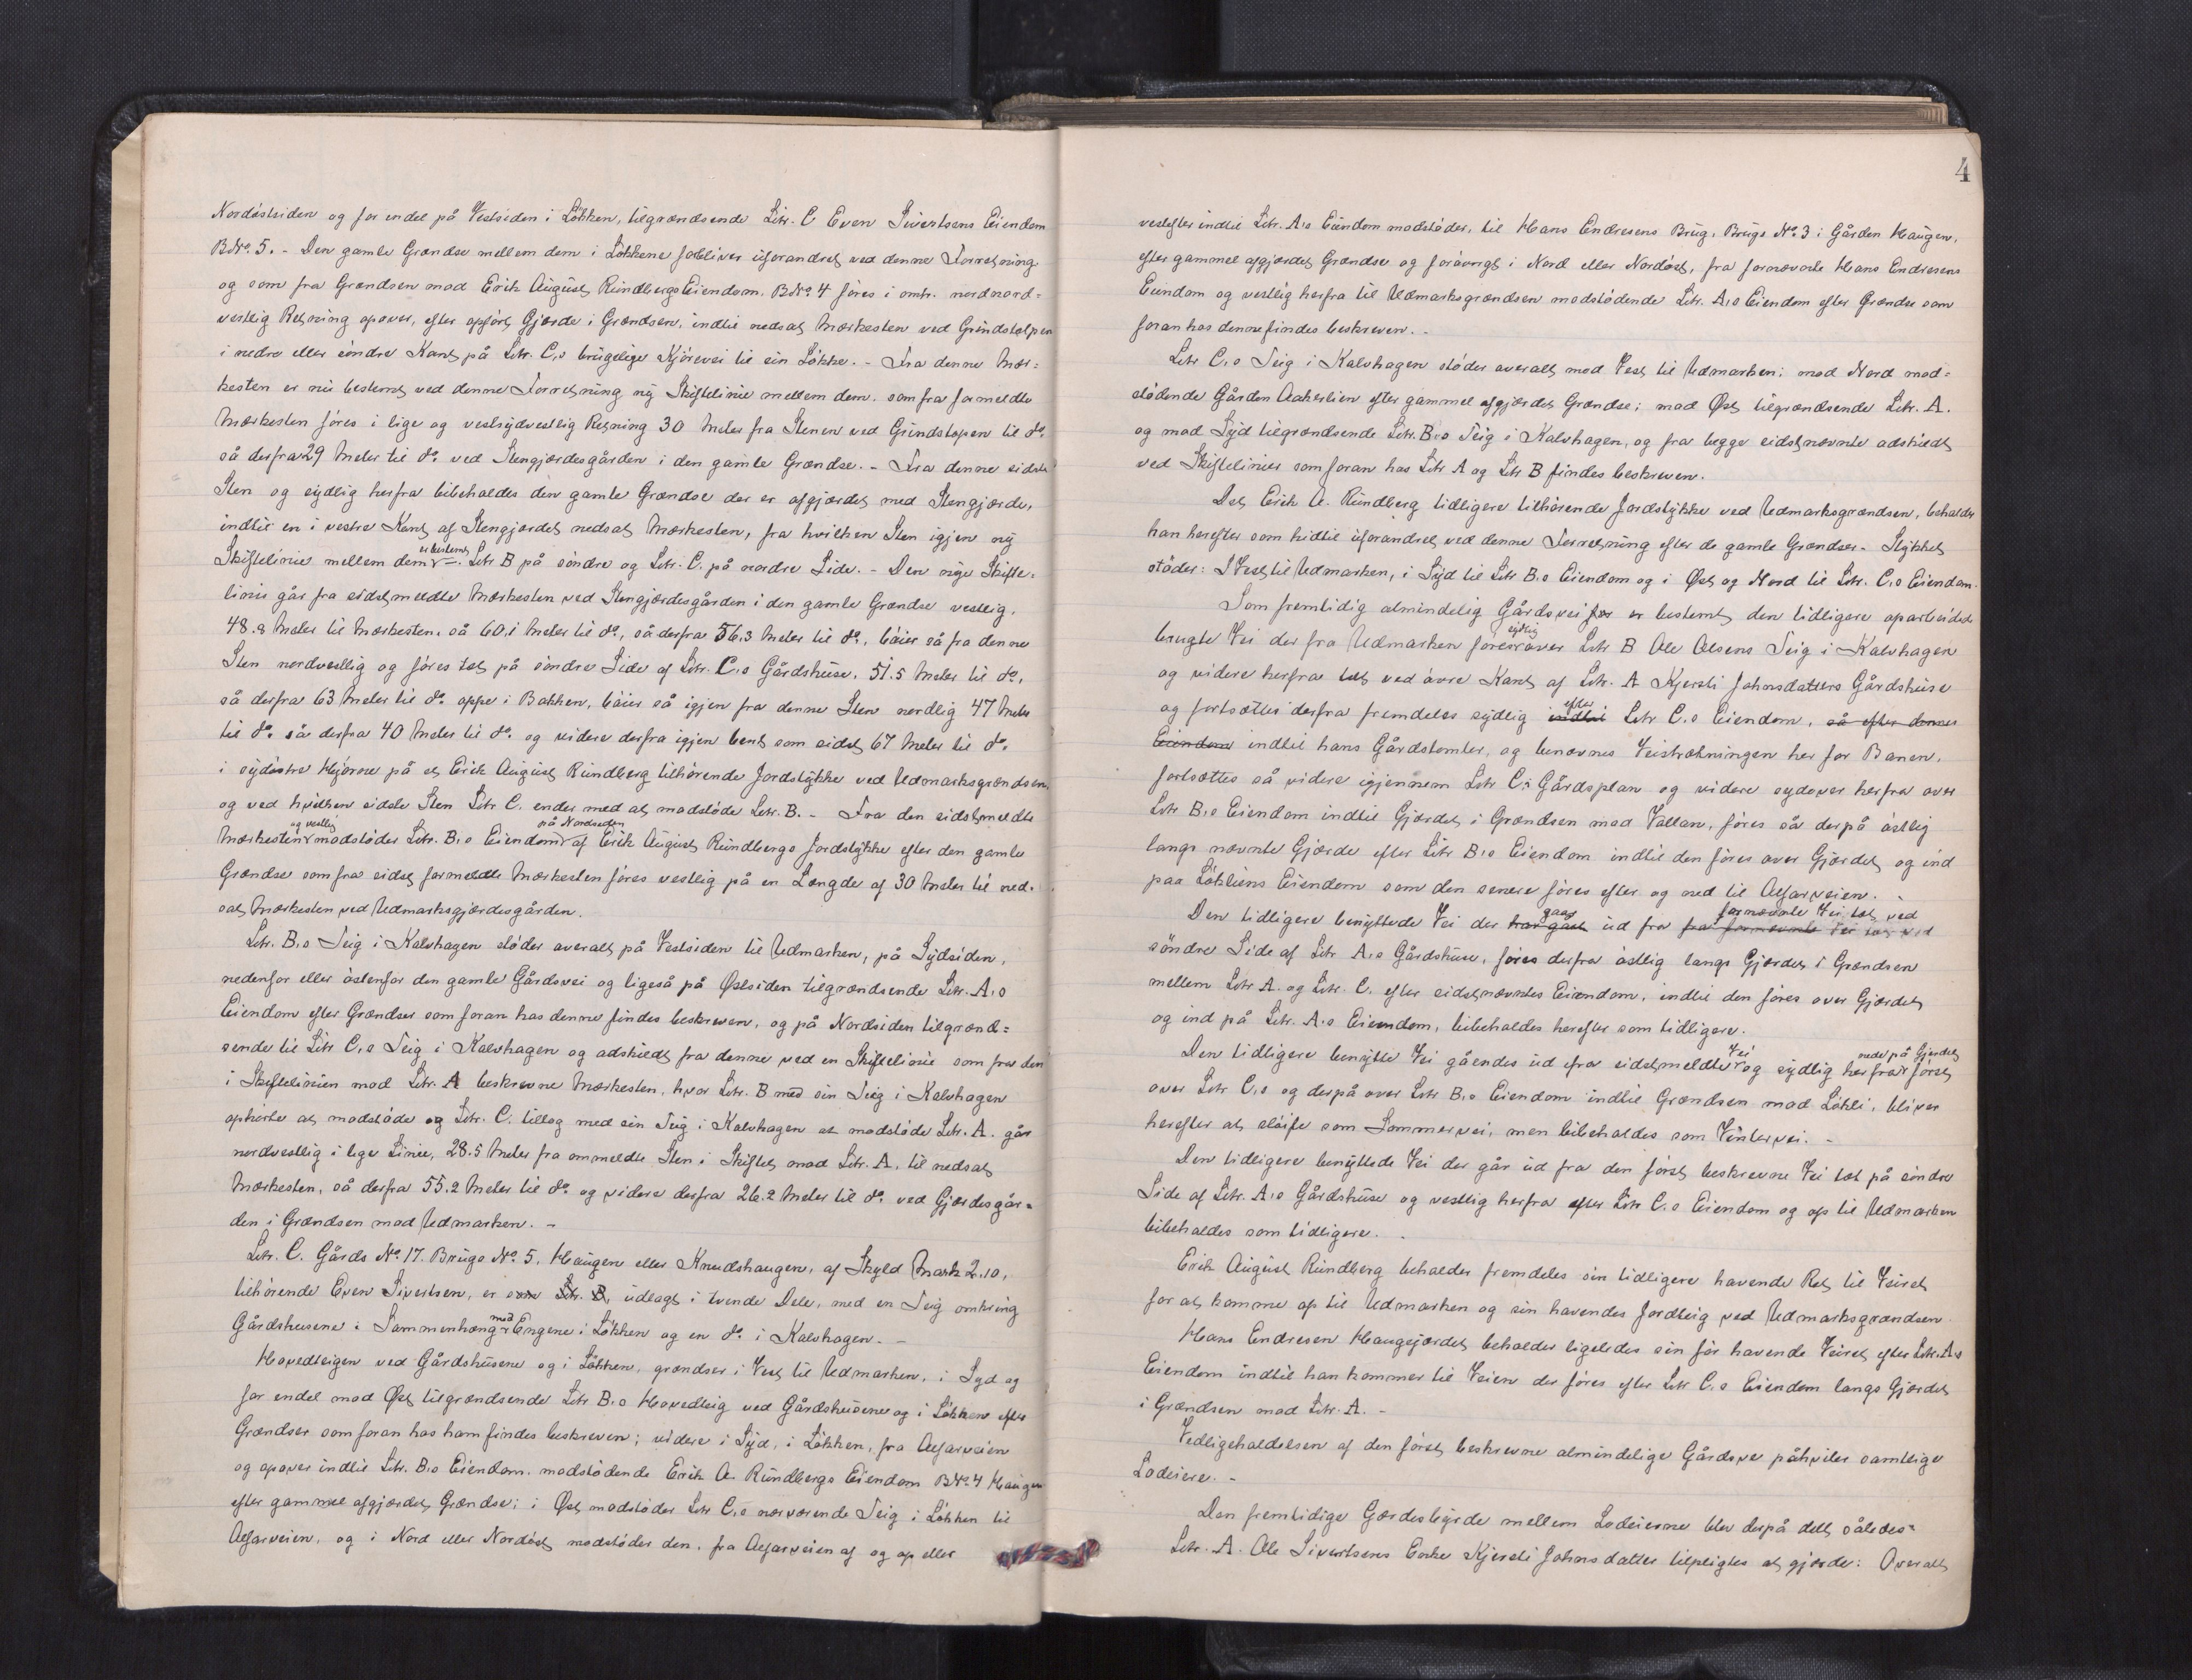 Nordöstsiden og for endel på Vestsiden i Lökken, tilgrændsende Litr. C Even Sivertsens Eiendom
BNo. 5. - Den gamle Grændse mellem dem i Lökkene forbliver uforandret ved denne Forretning
og som fra Grændsen mod Erik August Rundbergs Eiendom. BNo 4 föres i omtr. nordnord=
vestlig Retning opover, efter opfört Gjærde i Grændsen, indtil nedsat Mærkesten ved Grindstolpen
i nedre eller söndre Kant på Litr. C,s brugelige Kjörevei til sin Lökke. - Fra denne Mær=
kesten er nu bestemt ved denne Forretning ny Skiftelinie mellem dem, som fra formeldte
Mærkesten föres i lige og vestsydvestlig Retning 30 Meter fra Stenen ved Grindstopen til do.
så derfra 29 Meter til do ved Stengjærdesgården i den gamle Grændse. - Fra denne sidste
Sten og sydlig herfra bibeholdes den gamle Grændse der er afgjærdet med Stengjærde,
indtil en i vestre Kant af Stengjærdet nedsat Mærkesten, fra hvilken Sten igjen ny
Skiftelinie mellem dem er bestemt Litr B på söndre og Litr. C. på nordre Side. - Den nye Skifte=
linie går fra sidstmeldte Mærkesten ved Stengjærdesgården i den gamle Grændse vestlig,
48.8 Meter til Mærkesten, så 60,1 Meter til do, så derfra 56.3 Meter til do, böier så fra denne
Sten nordvestlig og föres tæt på söndre Side af Litr. C,s Gårdshuse, 51.5 Meter til do,
så derfra 63 Meter til do oppe i Bakken, böier så igjen fra denne Sten nordlig 47 Meter
til do så derfra 40 Meter til do og videre derfra igjen bent som sidst 67 Meter til do
i sydöstre Hjörne på et Erik August Rundberg tilhörende Jordstykke ved Udmarksgrændsen
og ved hvilken sidste Sten Litr C. ender med at modstöde Litr. B. - Fra den sidstmeldte
Mærkesten og vestlig modstöder Litr. B,s Eiendom på Nordsiden af Erik August Rundbergs Jordstykke efter den gamle
Grændse som fra sidst formeldte Mærkesten föres vestlig på en Længde af 30 Meter til ned-
sat Mærkesten ved Udmarksgjærdesgården.
Litr. B,s Teig i Kalvhagen stöder overalt på Vestsiden til Udmarken, på Sydsiden,
nedenfor eller östenfor den gamle Gårdsvei og ligeså på Östsiden tilgrændsende Litr. A,s
Eiendom efter Grændser som foran hos denne findes beskreven, og på Nordsiden tilgrænd=
sende til Litr C,s Teig i Kalvhagen og adskildt fra denne ved en Skiftelinie som fra den
i Skiftelinien mod Litr. A beskrevne Mærkesten, hvor Litr. B med sin Teig i Kalvhagen
ophörte at modstöde og Litr. C. tiltog med sin Teig i Kalvhagen at modstöde Litr. A. går
nordvestlig i lige Linie, 28.5 Meter fra ommeldte Sten i Skiftet mod Litr. A, til nedsat
Mærkesten, så derfra 55.2 Meter til do og videre derfra 26.2 Meter til do ved Gjærdesgår=
den i Grændsen mod Udmarken. -
Litr. C. Gårds No. 17. Brugs No. 5. Haugen eller Knudshaugen, af Skyld Mark 2.10,
tilhörende Even Sivertsen, er som Litr. B, udlagt i tvende Dele, med en Teig omkring
Gårdshusene i Sammenhæng med Engene i Lökken og en do i Kalvhagen. -
Hovedteigen ved Gårdshusene og i Lökken, grændser i Vest til Udmarken, i Syd og
for endel mod Öst tilgrændsende Litr B,s Hovedteig ved Gårdshusene og i Lökken efter
Grændser som foran hos ham findes beskreven; videre i Syd, i Lökken, fra Alfarveien
og opover indtil Litr. B,s Eiendom, modstödende Erik A. Rundbergs Eiendom BNo 4 Haugen
efter gammel afgjærdet Grændse; i Öst modstöder Litr C,s nærværende Teig i Lökken til
Alfarveien, og i Nord eller Nordöst modstöder den, fra Alfarveien af og op eller
4
vestefter indtil Litr. A,s Eiendom modstöder, til Hans Endresens Brug, Brugs No. 3 i Gården Haugen,
efter gammel afgjærdet Grændse og forövrigt i Nord eller Nordöst, fra fornævnte Hans Endresens
Eiendom og vestlig herfra til Udmarksgrændsen modstödende Litr. A,s Eiendom efter Grændse som
foran hos denne findes beskreven. -
Litr C,s Teig i Kalvhagen stöder overalt mod Vest til Udmarken; mod Nord mod=
stödende Gården Aakerlien efter gammel afgjærdet Grændse; mod Öst tilgrændsende Litr. A.
og mod Syd tilgrændsende Litr. B,s Teig i Kalvhagen, og fra begge sidstnævnte adskildt
ved Skiftelinier som foran hos Litr A og Litr B findes beskreven.
Det Erik A. Rundberg tidligere tilhörende Jordstykke ved Udmarksgrændsen, beholder
han herefter som hidtil uforandret ved denne Forretning efter de gamle Grændser. Stykket
stöder: I Vest til Udmarken, i Syd til Litr B,s Eiendom og i Öst og Nord til Litr. C,s Eiendom.
Som fremtidig almindelig Gårdsvei for er bestemt den tidligere oparbeidede
brugte Vei der fra Udmarken föres sydlig over Litr B Ole Olsens Teig i Kalvhagen
og videre herfra tæt ved övre Kant af Litr. A Kjersti Johnsdatters Gårdshuse
og fortsættes derfra fremdeles sydlig indtil efter Litr C,s Eiendom, så efter denne
Eiendom indtil hans Gårdstomter, og benævnes Veistrækningen her for Banen,
fortsættes så videre igjennem Litr C,s Gårdsplan og videre sydover herfra over
Litr B,s Eiendom indtil Gjærdet i Grændsen mod Vollan, föres så derpå östlig
langs nævnte Gjærde efter Litr B,s Eiendom indtil den föres over Gjærdet og ind
paa Löklliens Eiendom som den senere föres efter og ned til Alfarveien.
Den tidligere benyttede Vei der har gået gaar ud fra fra fornævnte Vei tæt ved fornævnte Vei tæt ved
söndre Side af Litr A,s Gårdshuse, föres derfra östlig langs Gjærdet i Grændsen
mellem Litr A. og Litr. C. efter sidstnævntes Eiendom, indtil den föres over Gjærdet
og ind på Litr. A,s Eiendom, bibeholdes herefter som tidligere.
Den tidligere benytte Vei gåendes ud fra sidstmeldte Vei og sydlig herfra nede på Gjerdet först
over Litr C,s og derpå over Litr B,s Eiendom indtil Grændsen mod Lökli, bliver
herefter at slöife som Sommervei, men bibeholdes som Vintervei. -
Den tidligere benyttede Vei der går ud fra den först beskrevne Vei tæt på söndre
Side af Litr. A,s Gårdshuse og vestlig herfra efter Litr C,s Eiendom og op til Udmarken
bibeholdes som tidligere.
Erik August Rundberg beholder fremdeles sin tidligere havende Ret til Veiret
for at komme op til Udmarken og sin havendes Jordteig ved Udmarksgrændsen.
Hans Endresen Haugsjordet beholder ligeledes sin för havende Veiret efter Litr. A,s
Eiendom indtil han kommer til Veien der föres efter Litr C,s Eiendom langs Gjærdet
i Grændsen mod Litr. A. -
Vedligeholdelsen af den först beskrevne almindelige Gårdsvei påhviler samtlige
Lodeiere. -
Den fremtidige Gærdesbyrde mellem Lodeierne blev derpå delt således:
Litr. A. Ole Sivertsens Enke Kjersti Johnsdatter tilpligtes at gjærde: Overalt